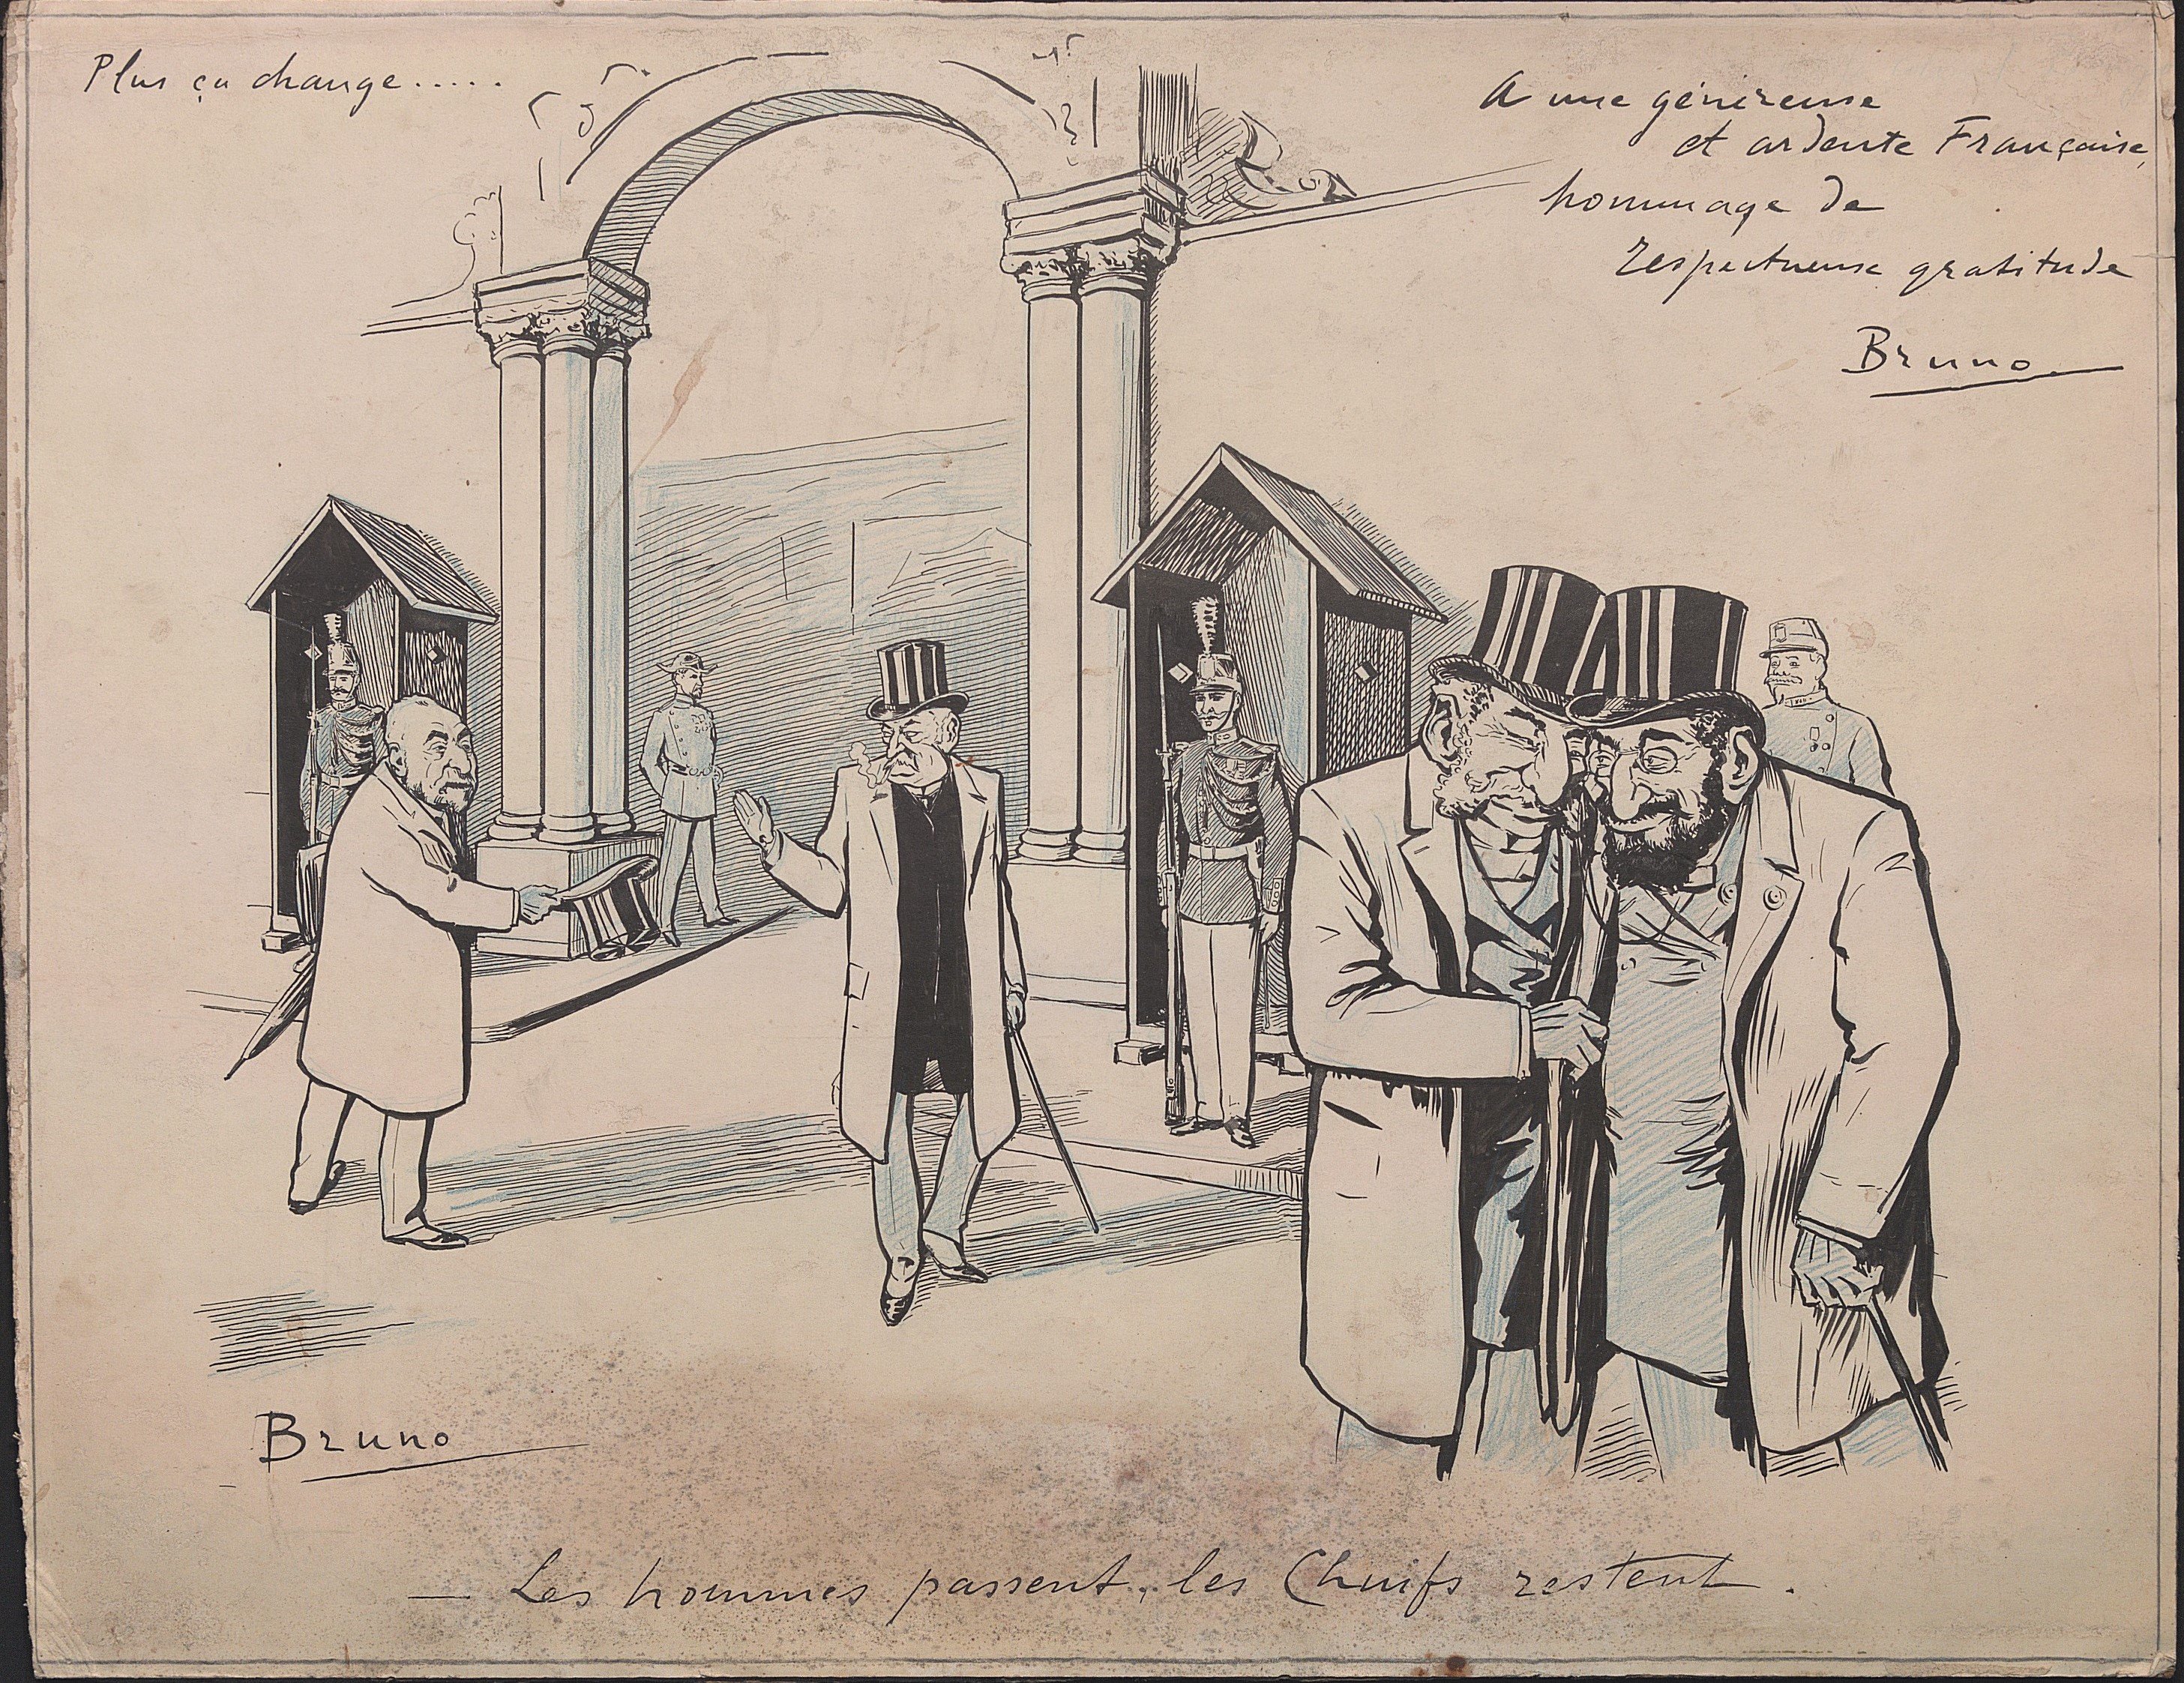 Plus ça change.....
A une généreuse
et ardente Française,
hommage de
respectueuse gratitude
Bruno
Bruno
— Les hommes passent, les Chuifs restent.